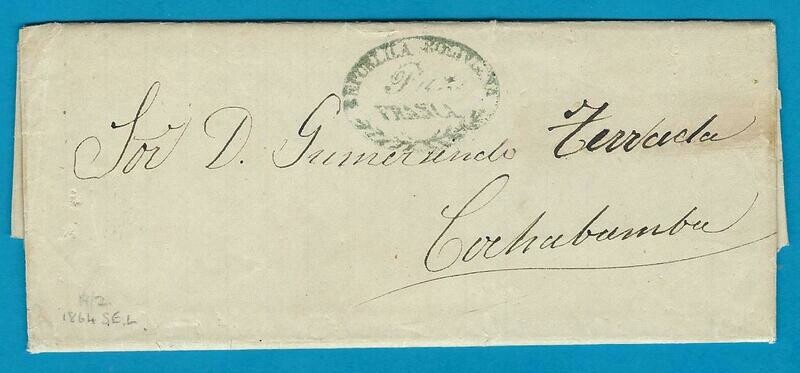 REPUBLICA BOLIVIANA
Paz
FRANCA
Sor D. Gumersindo Terrada
Cochabamba
1864 S.E.L.